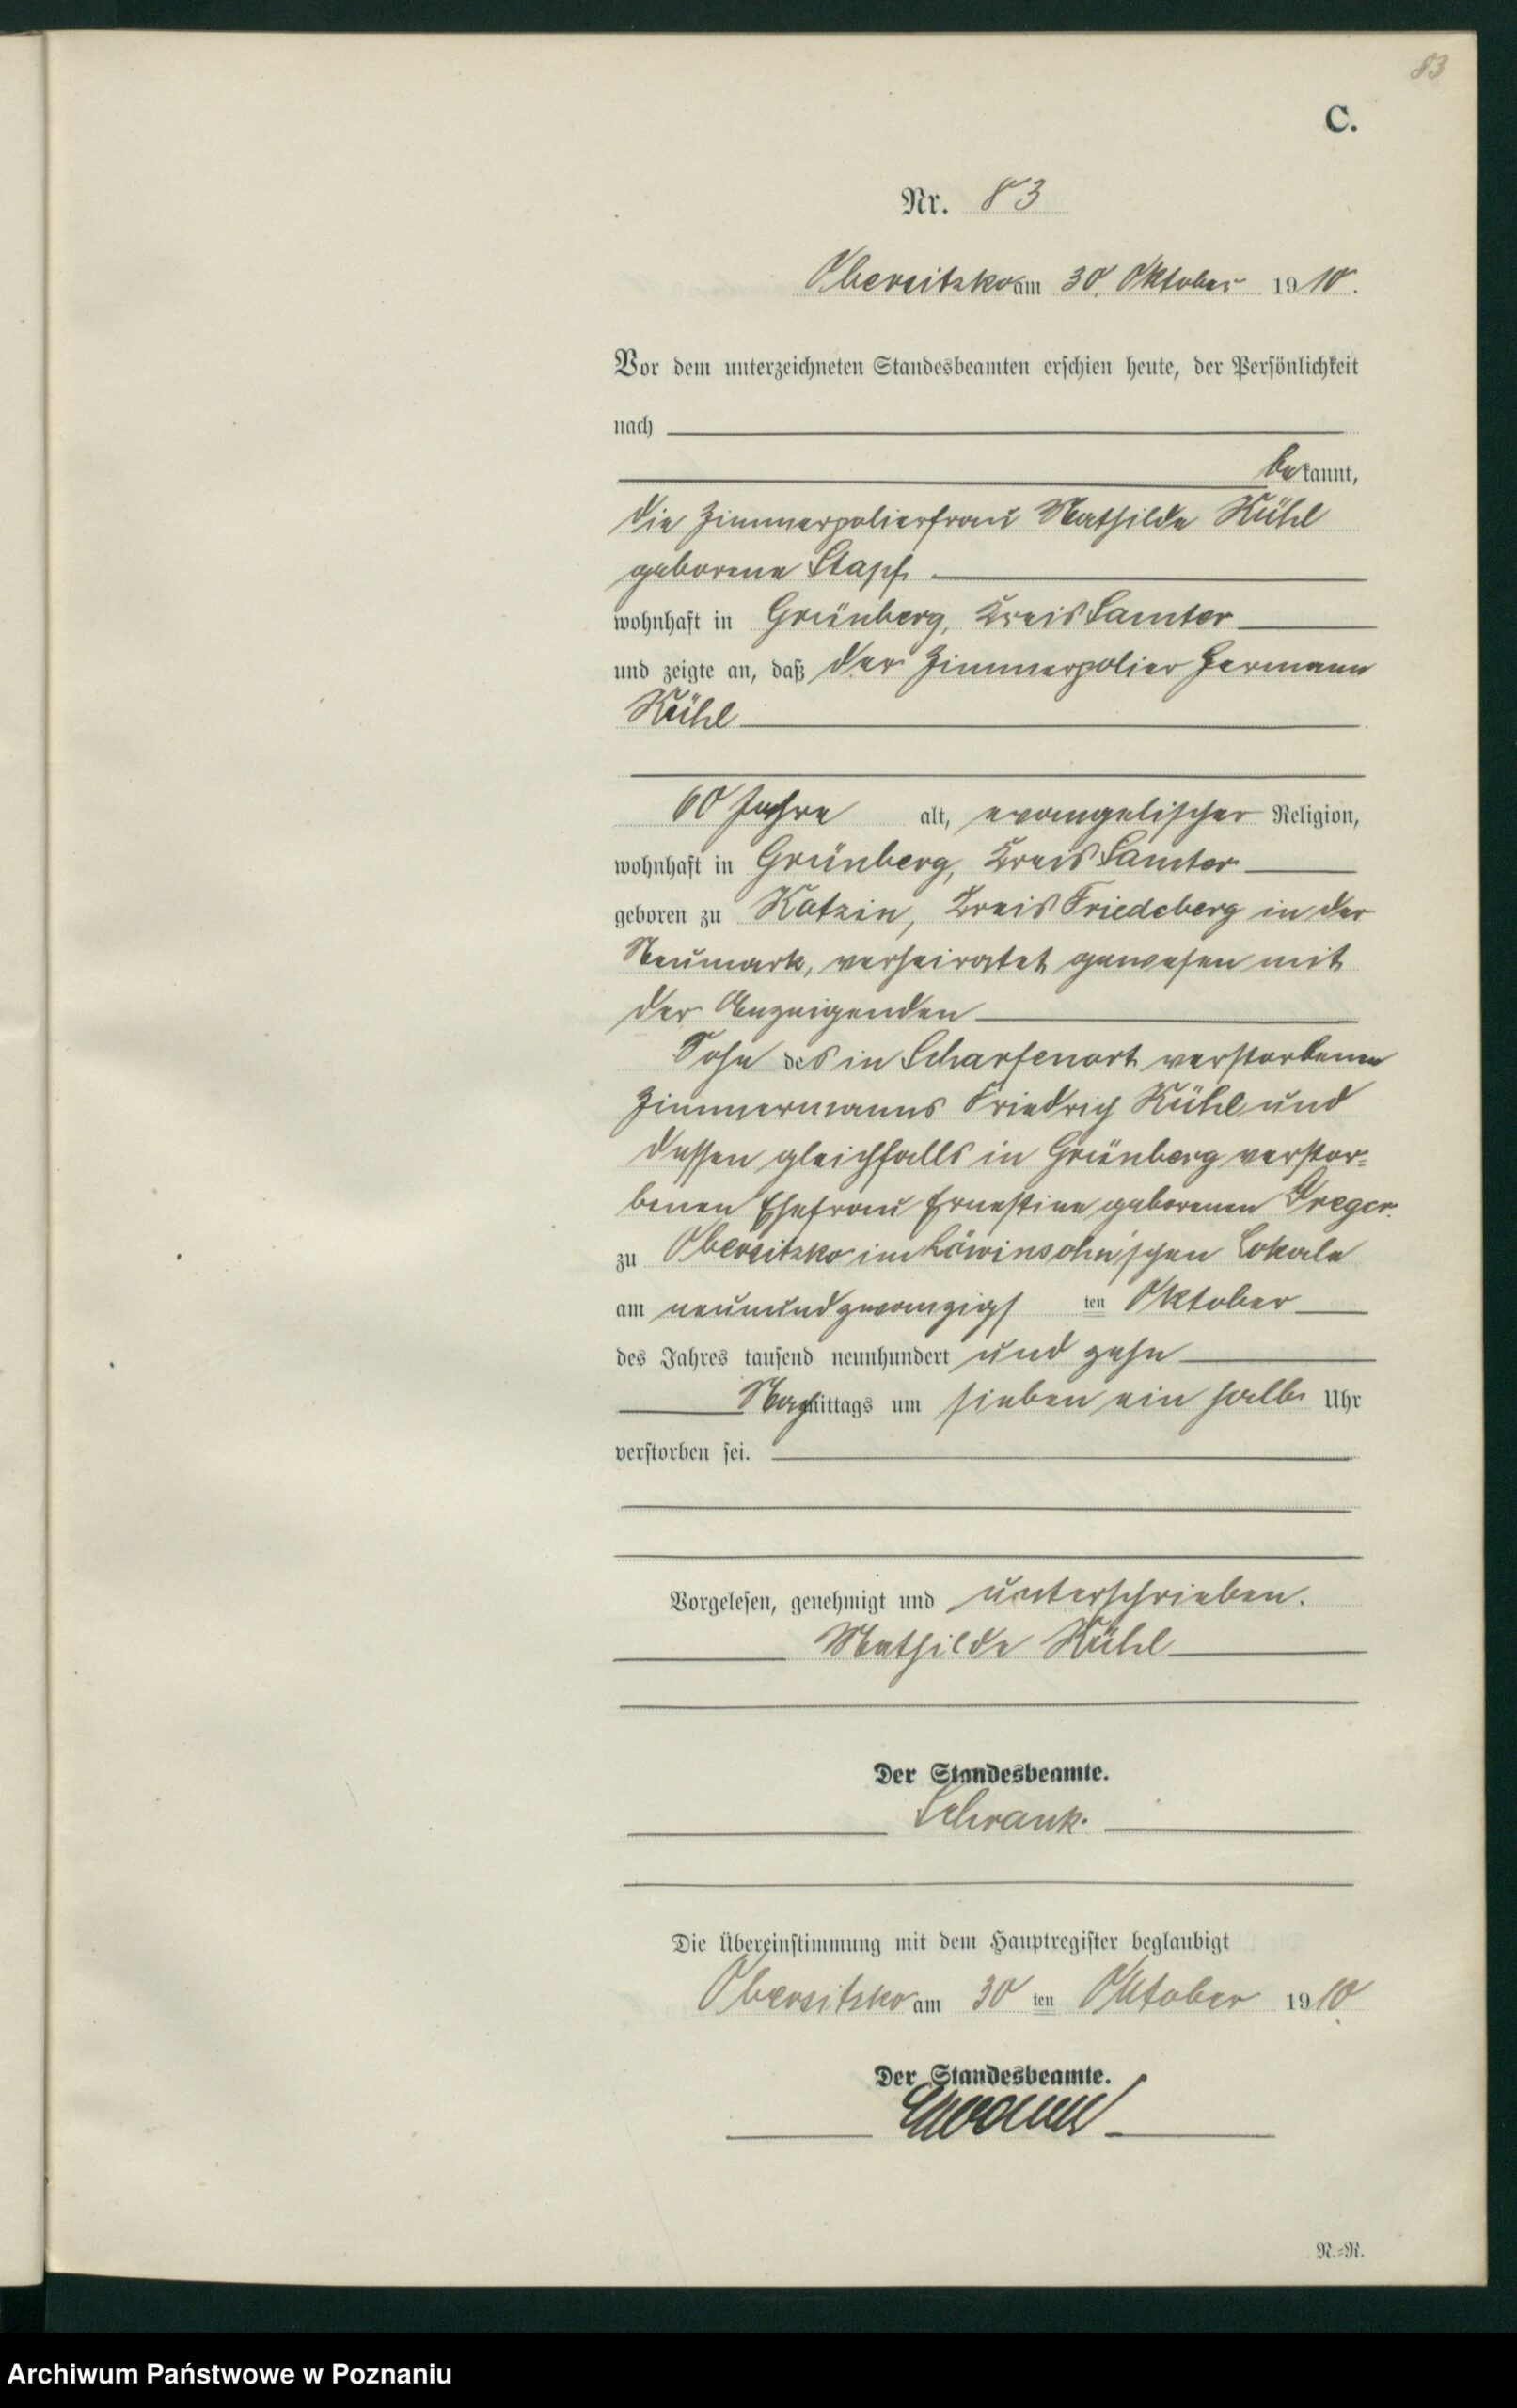 83
C.
Nr. 83
Obersitzko am 30. Oktober 1910.
Vor dem unterzeichneten Standesbeamten erschien heute, der Persönlichkeit
nach
bekannt,
die Zimmerpolierfrau Mathilde Kühl
geborene Stapf
wohnhaft in Grünberg, Kreis Samter
und zeigte an, daß der Zimmerpolier Hermann
Kühl
60 Jahre alt, evangelischer Religion,
wohnhaft in Grünberg, Kreis Samter
geboren zu Kotzin, Kreis Friedeberg in der
Neumark, verheiratet gewesen mit
der Anzeigenden
Sohn des in Scharfenort verstorbenen
Zimmermanns Friedrich Kühl und
dessen gleichfalls in Grünberg verstor=
benen Ehefrau Ernestine geborenen Dreger.
zu Obersitzko im Löwinsohn'schen Lokale
am neunundzwanzigsten Oktober
des Jahres tausend neunhundert und zehn
Nachmittags um sieben ein halb Uhr
verstorben sei.
Vorgelesen, genehmigt und unterschrieben.
Mathilde Kühl
Der Standesbeamte.
Schrank.
Die Übereinstimmung mit dem Hauptregister beglaubigt
Obersitzko am 30 ten Oktober 1910
Der Standesbeamte.
R.=R.
Archiwum Państwowe w Poznaniu